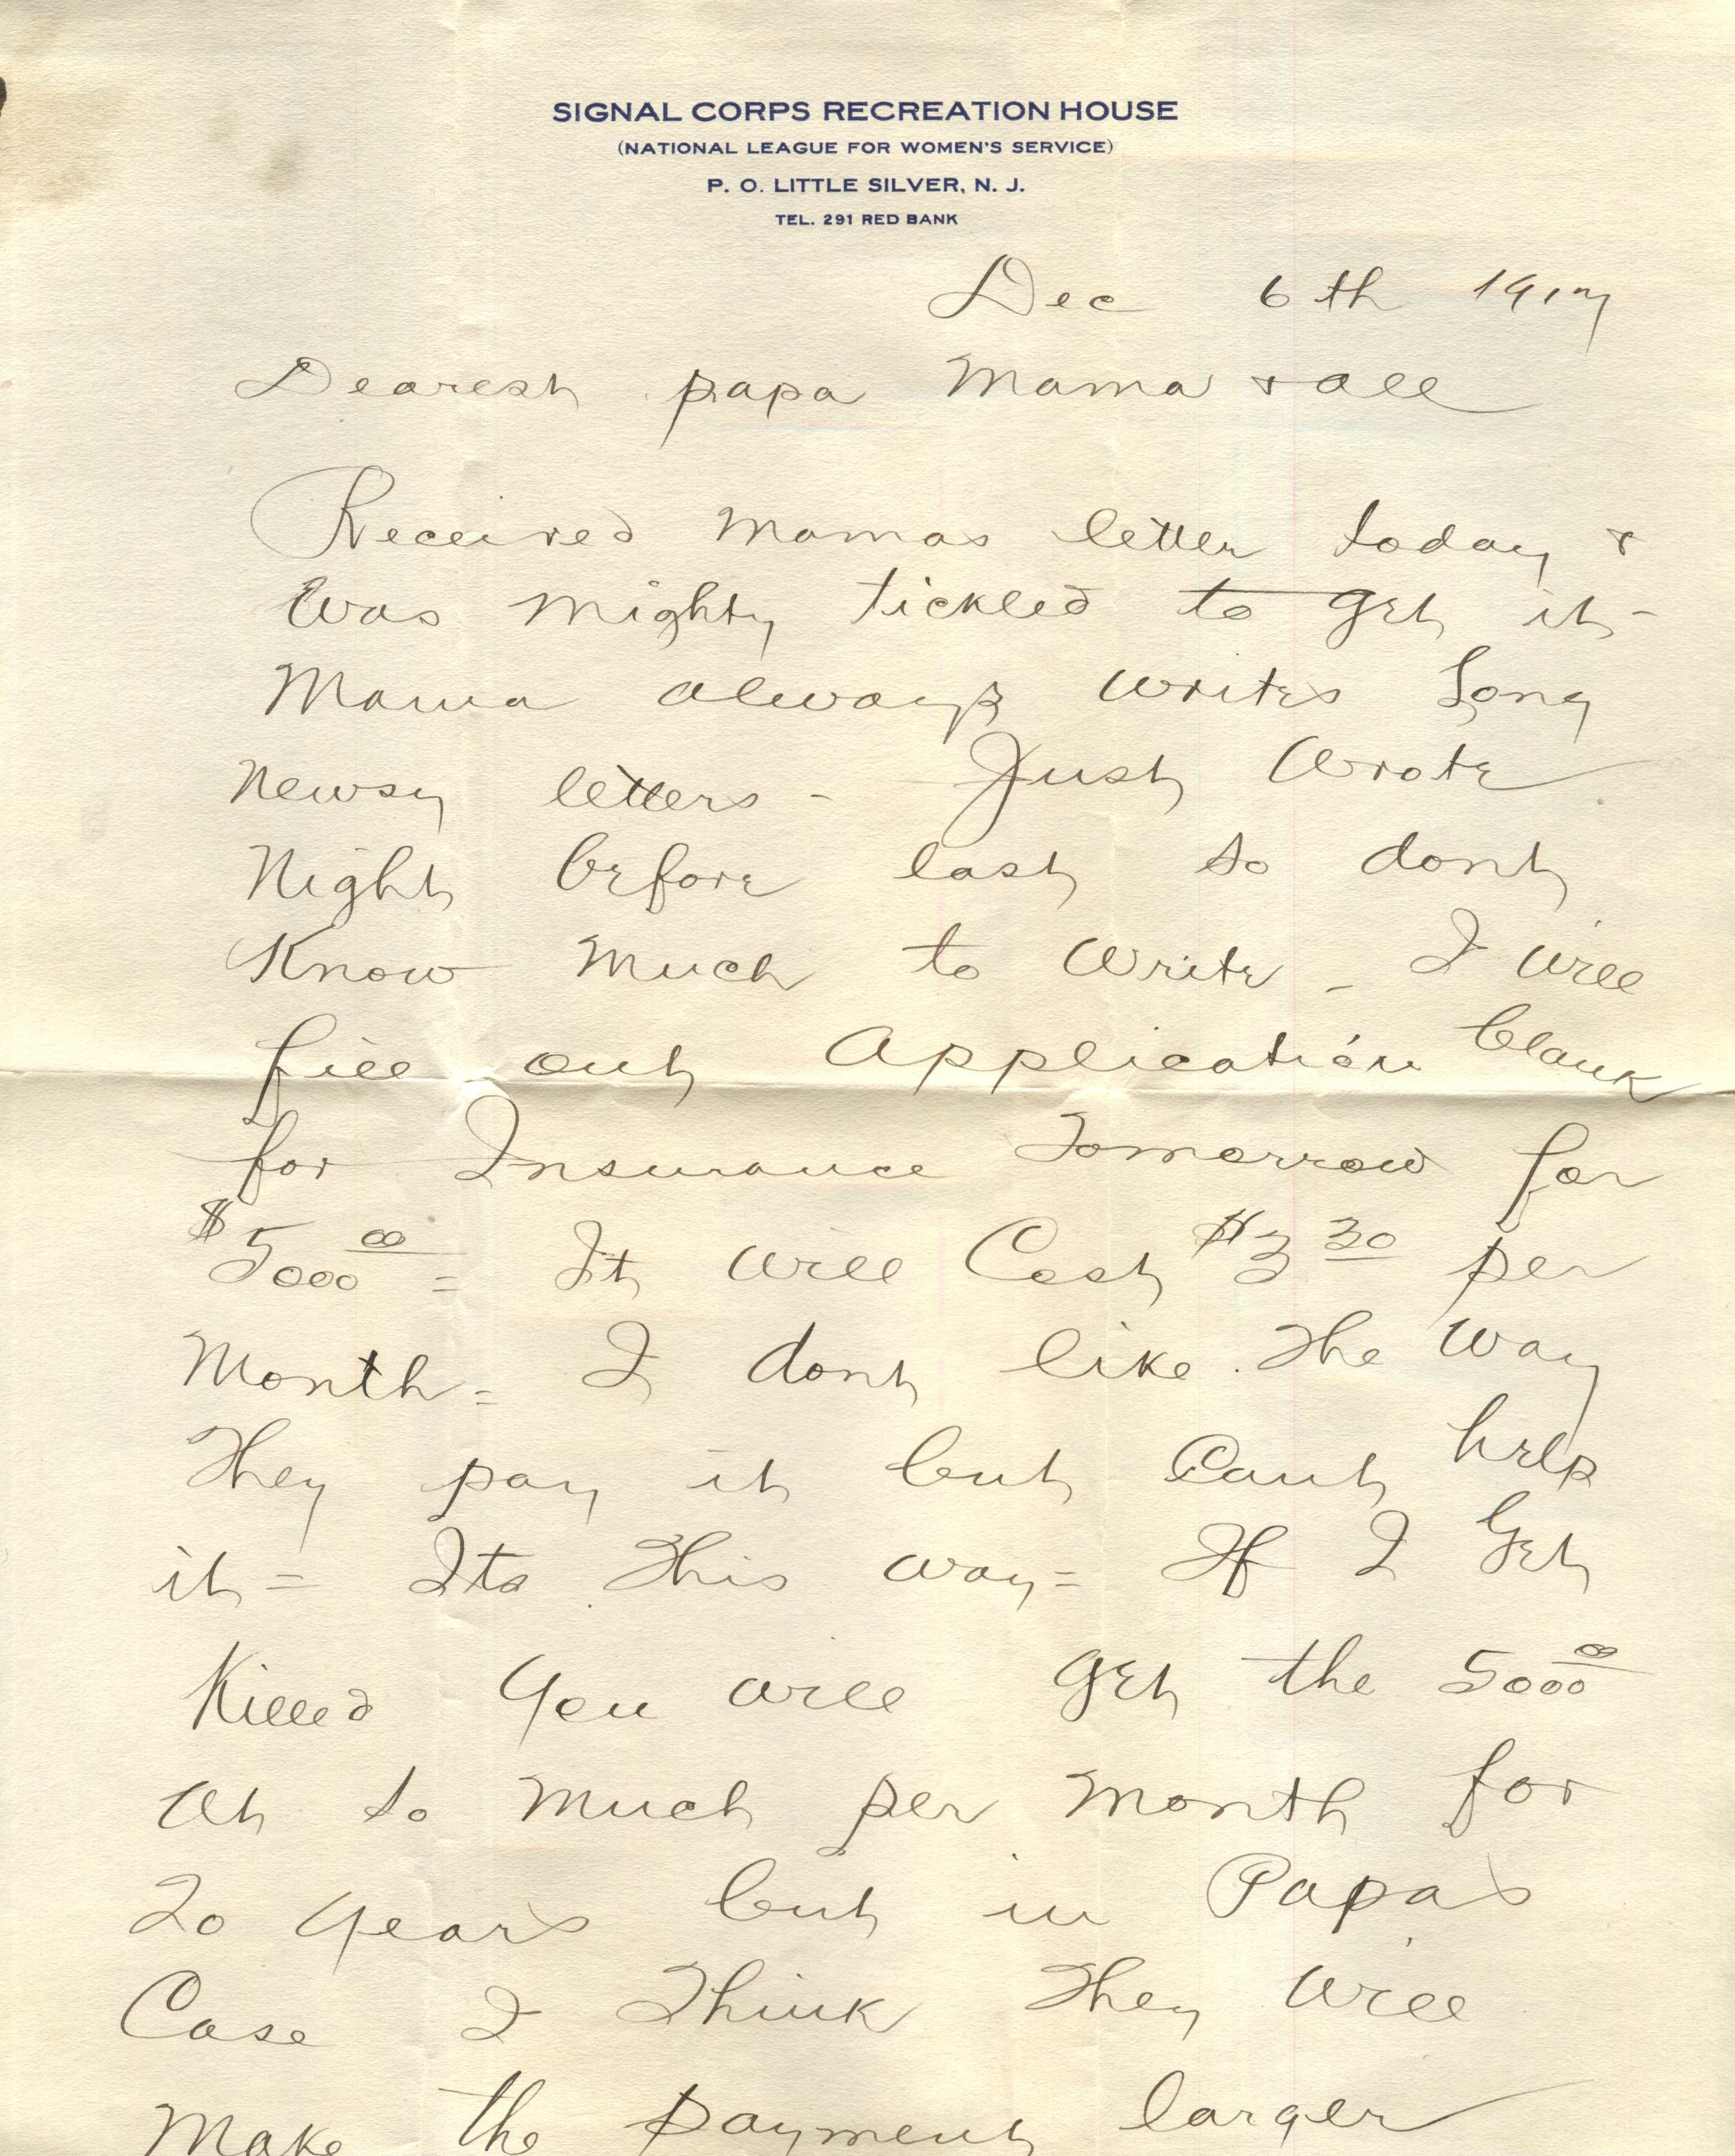 SIGNAL CORPS RECREATION HOUSE
(NATIONAL LEAGUE FOR WOMEN'S SERVICE)
P. O. LITTLE SILVER, N. J.
TEL. 291 RED BANK
Dec 6th 1917
Dearest papa Mama & all
Received Mamas letter today &
Was mighty tickled to get it -
Mama always writes Long
Newsy letters - Just Wrote
Night before last so dont
Know Much to Write - I will
fill out Application blank
for Insurance Tomorrow for
$5000 00 = It will Cost $3 30 per
Month = I dont like The Way
They pay it but Cant help
it = Its This way = If I Get
Killed You will get the 5000 00
At so Much per Month for
20 Years but in Papas
Case I Think They Will
Make the payment larger